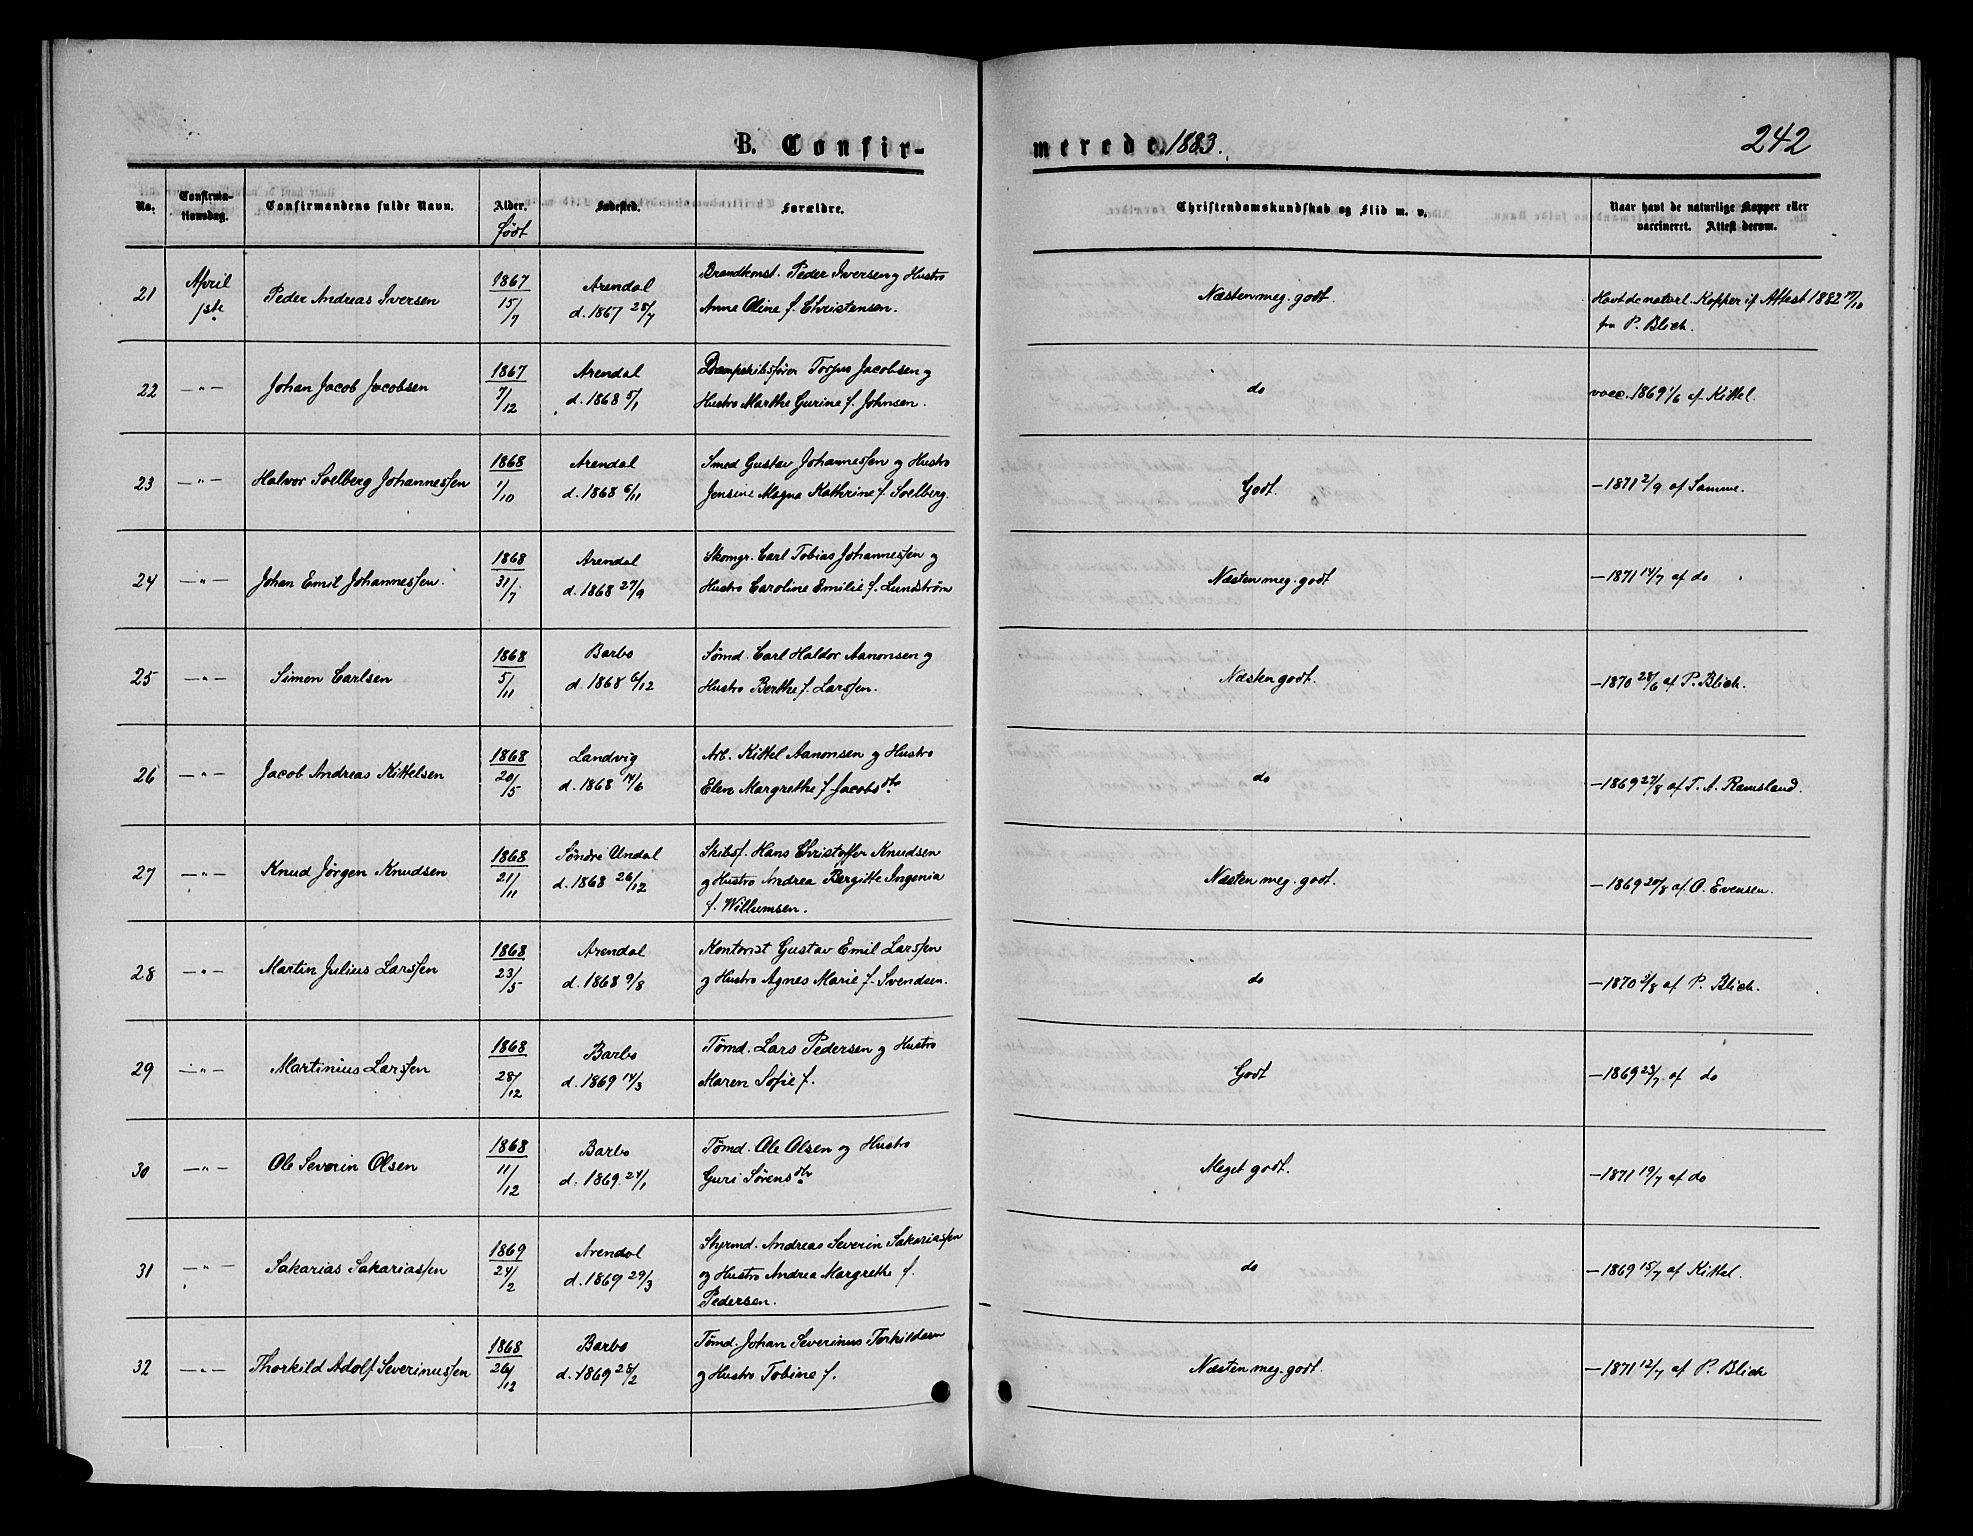 B. Confir-
merede 1883.
242
No.
Confirma-
tionsdag.
Confirmandens fulde Navn.
Alder.
født
Fødested.
Forældre.
Christendomskundskab og Flid m. v.
Naar havt de naturlige Kopper eller
vaccineret. Attest derom.
21
April
1ste
Peder Andreas Iversen
1867
15/7
Arendal
d. 1867 28/7
Brandkonst. Peder Iversen og Hustro
Anne Oline f. Christensen.
Næsten meg. godt.
Havt de naturl. Kopper if Attest 1882 17/10
fra P. Blich.
22
—„—
Johan Jacob Jacobsen
1867
7/12
Arendal
d. 1868 5/1
Dampskibsfører Torjus Jacobsen og
Hustro Marthe Gurine f. Johnsen.
do
vacc. 1869 1/6 af Kittel.
23
—„—
Halvor Solberg Johannesſen
1868
1/10
Arendal
d. 1868 6/11
Smed Gustav Johannesſen og Hustro
Jensine Magna Kathrine f. Solberg.
Godt.
— 1871 2/9 af Samme.
24
—„—
Johan Emil Johannesſen.
1868
31/7
Arendal
d. 1868 27/9
Skomgr. Carl Tobias Johannesſen og
Hustro Caroline Emilie f. Lundström
Næsten meg. godt
— 1871 14/7 af do
25
—„—
Simon Carlsen
1868
5/11
Barbo
d. 1868 6/12
Sömd. Carl Haldor Aanonsen og
Hustro Berthe f. Larsſen.
Næsten godt.
— 1870 28/6 af P. Blich.
26
—„—
Jacob Andreas Kittelsen
1868
20/5
Landvig
d. 1868 14/6
Arb. Kittel Aanonsen og Hustro
Elen Margrethe f. Jacobsdtr
do
— 1869 27/8 af T. A. Ramsland.
27
—„—
Knud Jørgen Knudsen
1868
21/11
Søndre Undal
d. 1868 26/12
Skibsf. Hans Christoffer Knudsen
og Hustro Andrea Bergitte Ingenia
f. Willumsen.
Næsten meg. godt.
— 1869 20/8 af O. Evensen.
28
—„—
Martin Julius Larsſen
1868
23/5
Arendal
d. 1868 9/8
Kontorist Gustav Emil Larsſen
og Hustro Agnes Marie f. Svendsen.
do
— 1870 3/8 af P. Blich.
29
—„—
Martinius Larsſen
1868
28/12
Barbo
d. 1869 14/3
Tømd. Lars Pedersen og Hustro
Maren Sofie f.
Godt
— 1869 23/7 af do
30
—„—
Ole Severin Olsen
1868
11/12
Barbo
d. 1869 24/1
Tømd. Ole Olsen og Hustro
Guri Sørensdtr
Meget godt.
— 1871 19/7 af do
31
—„—
Sakarias Sakariasſen
1869
24/2
Arendal
d. 1869 29/3
Styrmd. Andreas Severin Sakariasſen
og Hustro Andrea Margrethe f.
Pedersen.
do
— 1869 15/7 af Kittel.
32
—„—
Thorkild Adolf Severinusſen
1868
26/12
Barbo
d. 1869 28/2
Tømd. Johan Severinus Torkildsen
og Hustro Tobine f.
Næsten meg. godt.
— 1871 12/7 af P. Blich